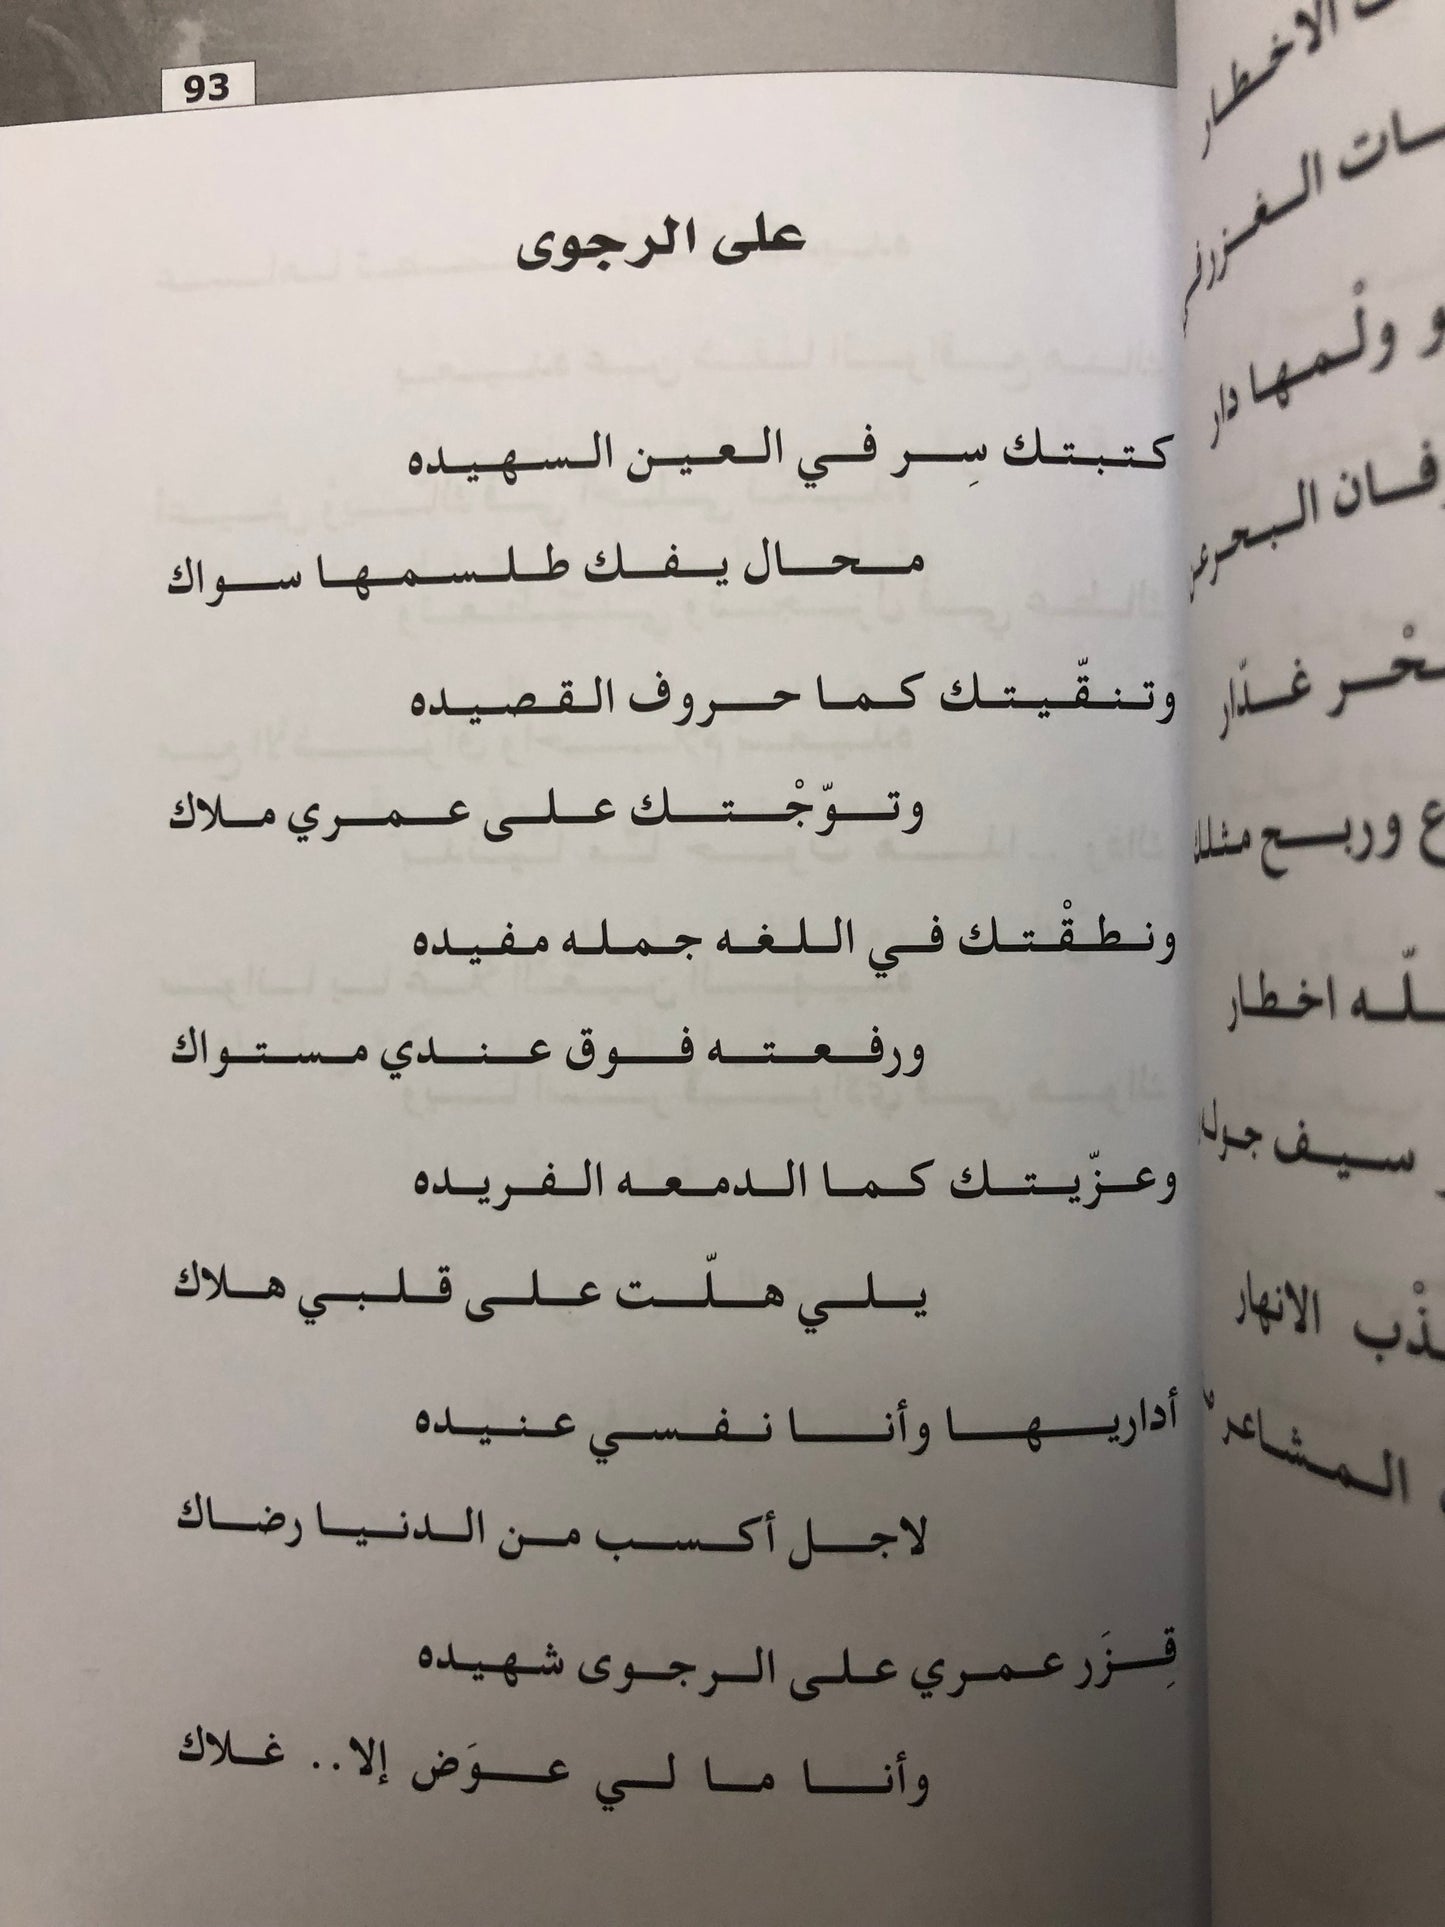 93
على الرجوى
كتبتك سِر في العين السهيده
محال يفك طلسمها سواك
وتنقّيتك كما حروف القصيده
وتوّجْتك على عمري ملاك
ونطقْتك في اللغه جمله مفيده
ورفعته فوق عندي مستواك
وعزّيتك كما الدمعه الفريده
يلي هلّت على قلبي هلاك
أداريها وأنا نفسي عنيده
لاجل أكسب من الدنيا رضاك
قِزَر عمري على الرجوى شهيده
وأنا ما لي عوَض إلا.. غلاك
الاخطار
ولْمها دار
غدّار
وربح مثلك
اخطار
سيف
الانهار
المشاعر